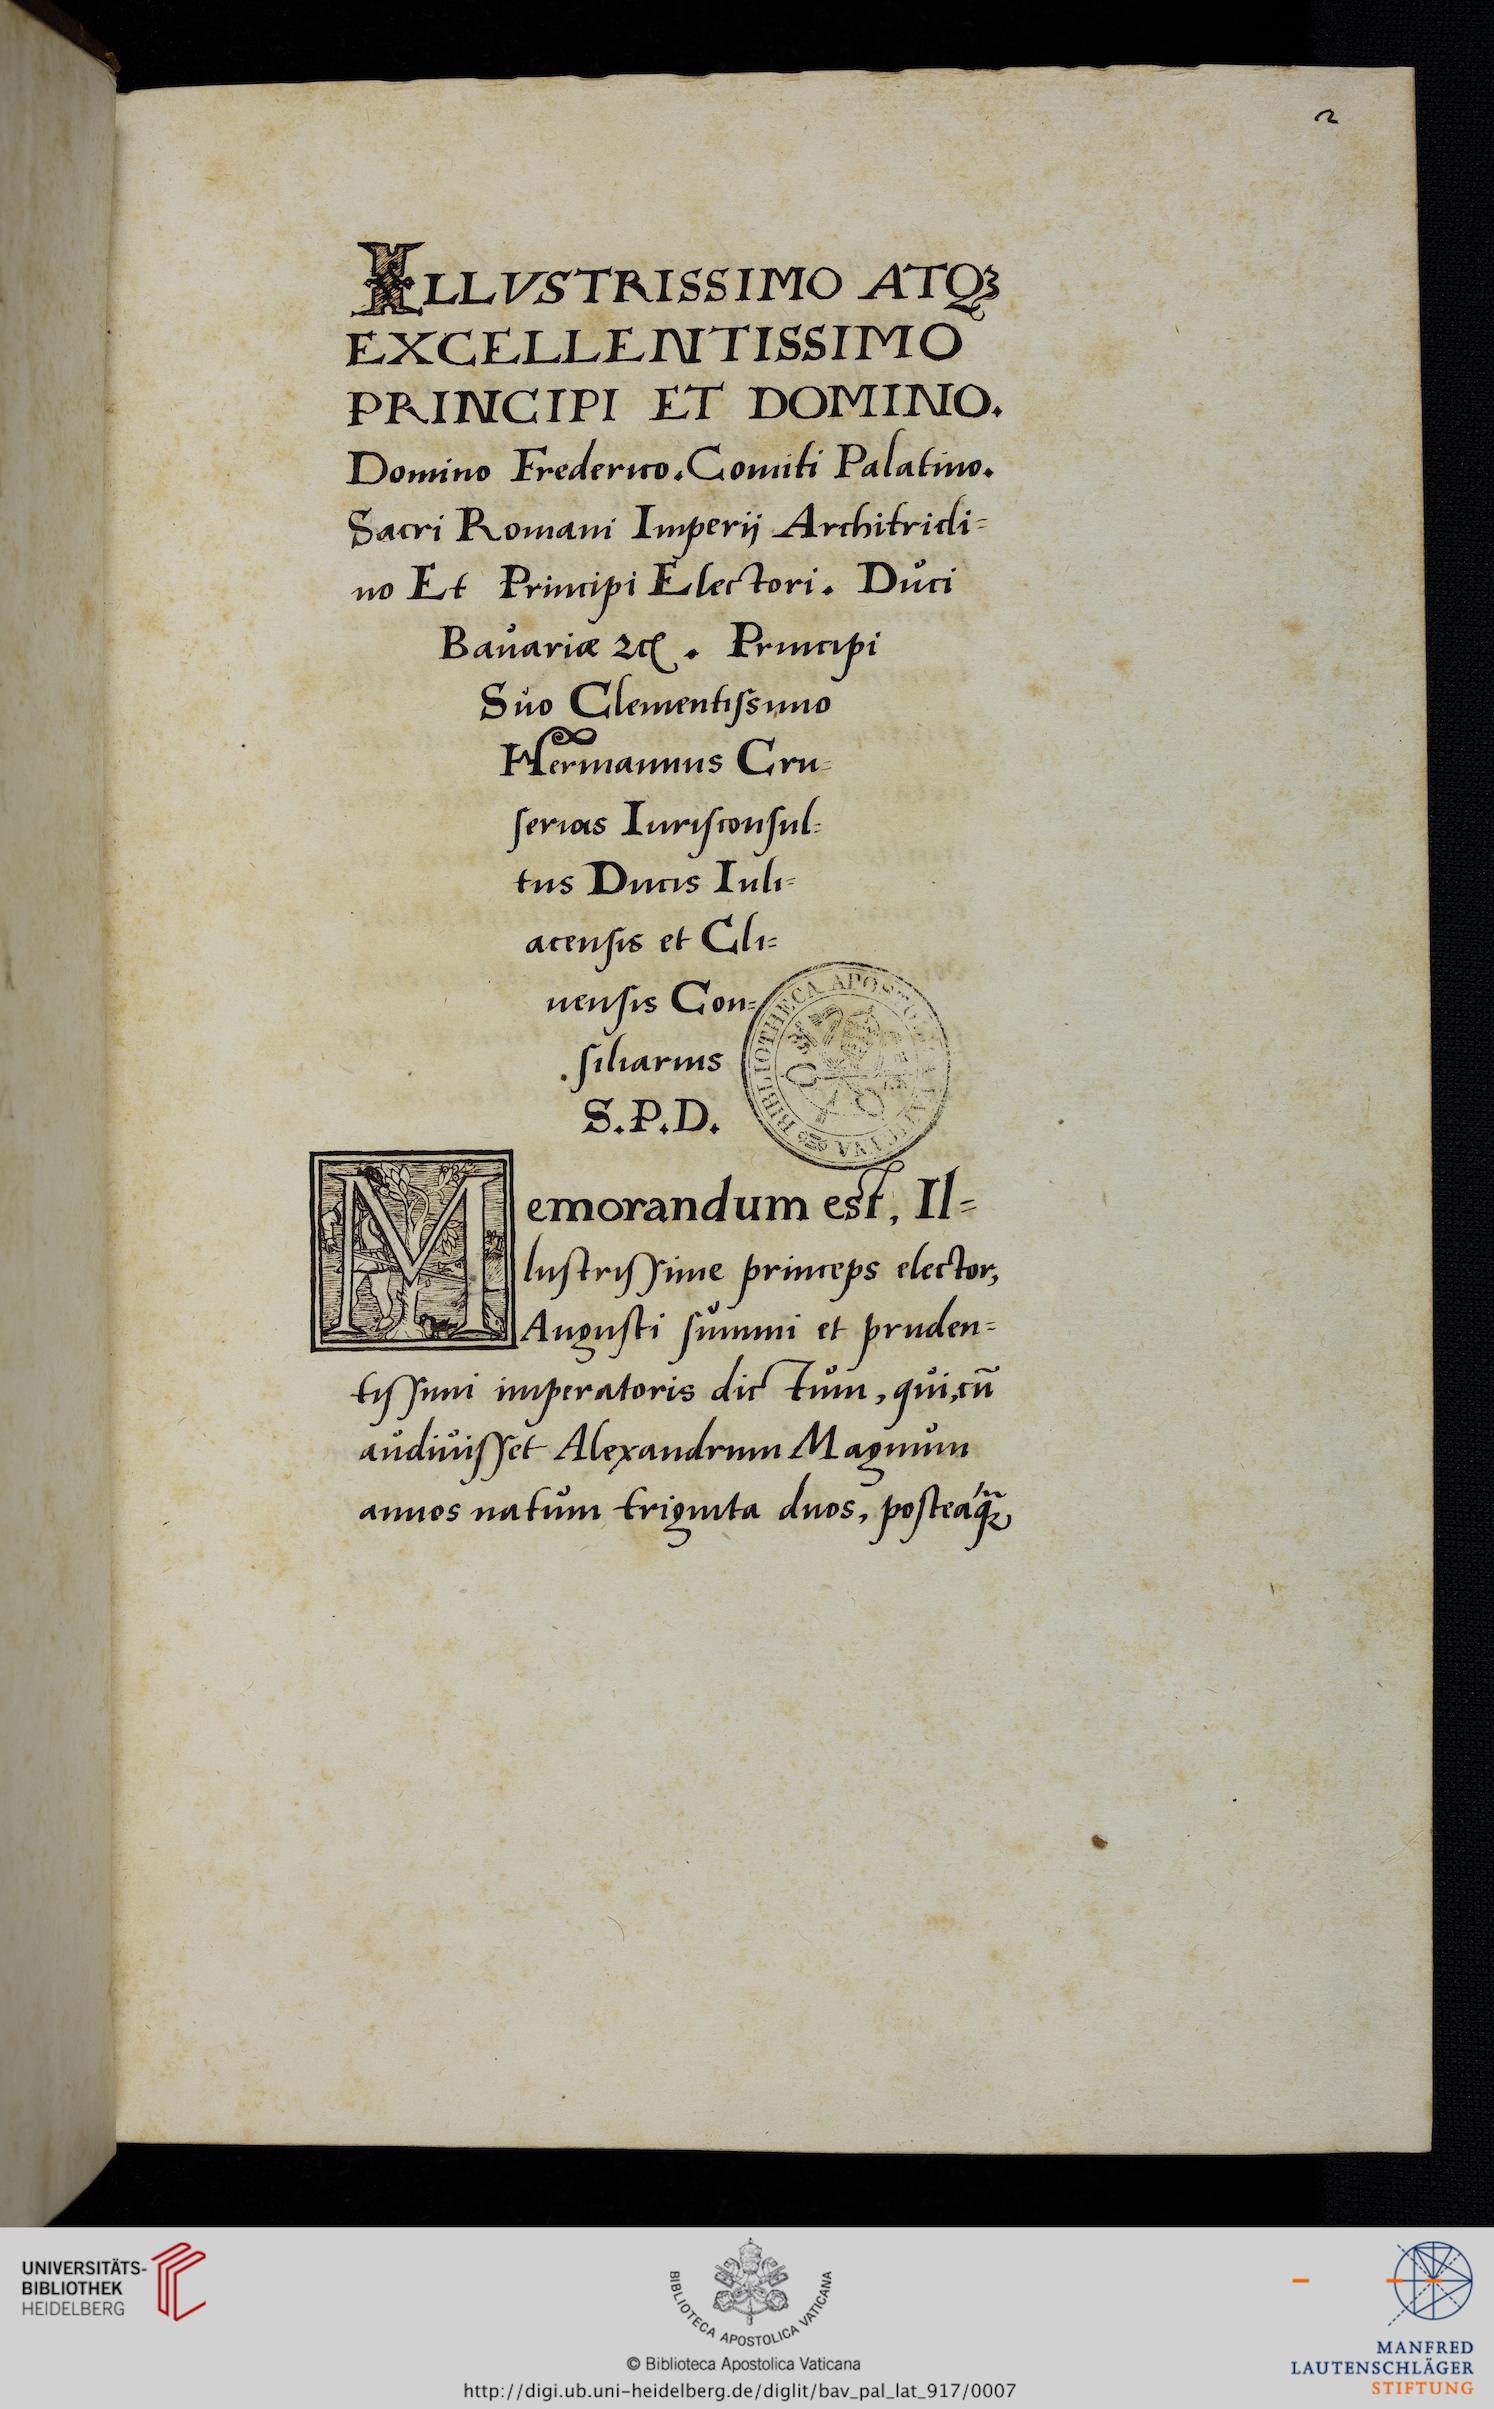 2
ILLVSTRISSIMO ATQꝫ
EXCELLENTISSIMO
PRINCIPI ET DOMINO.
Domino Frederico. Comiti Palatino.
Sacri Romani Imperij Architricli=
no Et Principi Electori. Duci
Bauariæ ⁊c. Principi
Suo Clementiſsimo
Hermannus Cru=
ſerius Iuriſconſul=
tus Ducis Iuli=
acenſis et Cli=
uenſis Con=
ſiliarius
S.P.D.
BIBLIOTHECA APOSTOLICA VATICANA
Memorandum est, Il=
luſtriſſime princeps elector,
Auguſti ſummi et pruden=
tiſſimi imperatoris dictum, qui, cū
audiuiſſet Alexandrum Magnum
annos natum triginta duos, poſteaq̃
UNIVERSITÄTS-
BIBLIOTHEK
HEIDELBERG
BIBLIOTECA APOSTOLICA VATICANA
© Biblioteca Apostolica Vaticana
http://digi.ub.uni-heidelberg.de/diglit/bav_pal_lat_917/0007
MANFRED
LAUTENSCHLÄGER
STIFTUNG